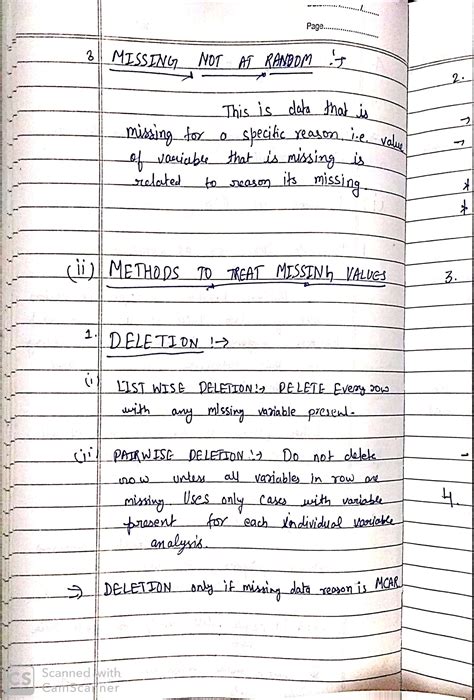 Page..............
3 MISSING NOT AT RANDOM :→
2.
This is data that is
missing for a specific reason, i.e. value
of variable that is missing is
related to reason its missing.
(ii) METHODS TO TREAT MISSING VALUES
3.
1. DELETION :→
(i) LIST WISE DELETION :→ DELETE Every row
with any missing variable present.
(ii) PAIRWISE DELETION :→ Do not delete
row unless all variables in row are
missing Uses only cases with variable
4.
present for each individual variable
analysis.
⇒ DELETION only if missing data reason is MCAR
CS Scanned with
CamScanner